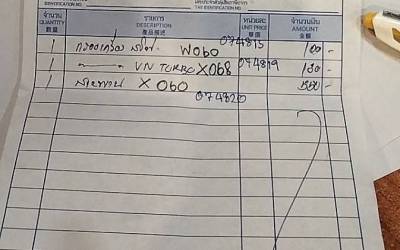 TAX IDENTIFICATION NO.
จำนวน รายการ หน่วยละ จำนวนเงิน
QUANTITY DESCRIPTION UNIT PRICE AMOUNT
數量 產品描述 單價 金額
1 กรองเครื่อง W060 074815 100 -
1 VN TURBO X068 074819 130 -
1 สายพาน X 060 074820 550 -